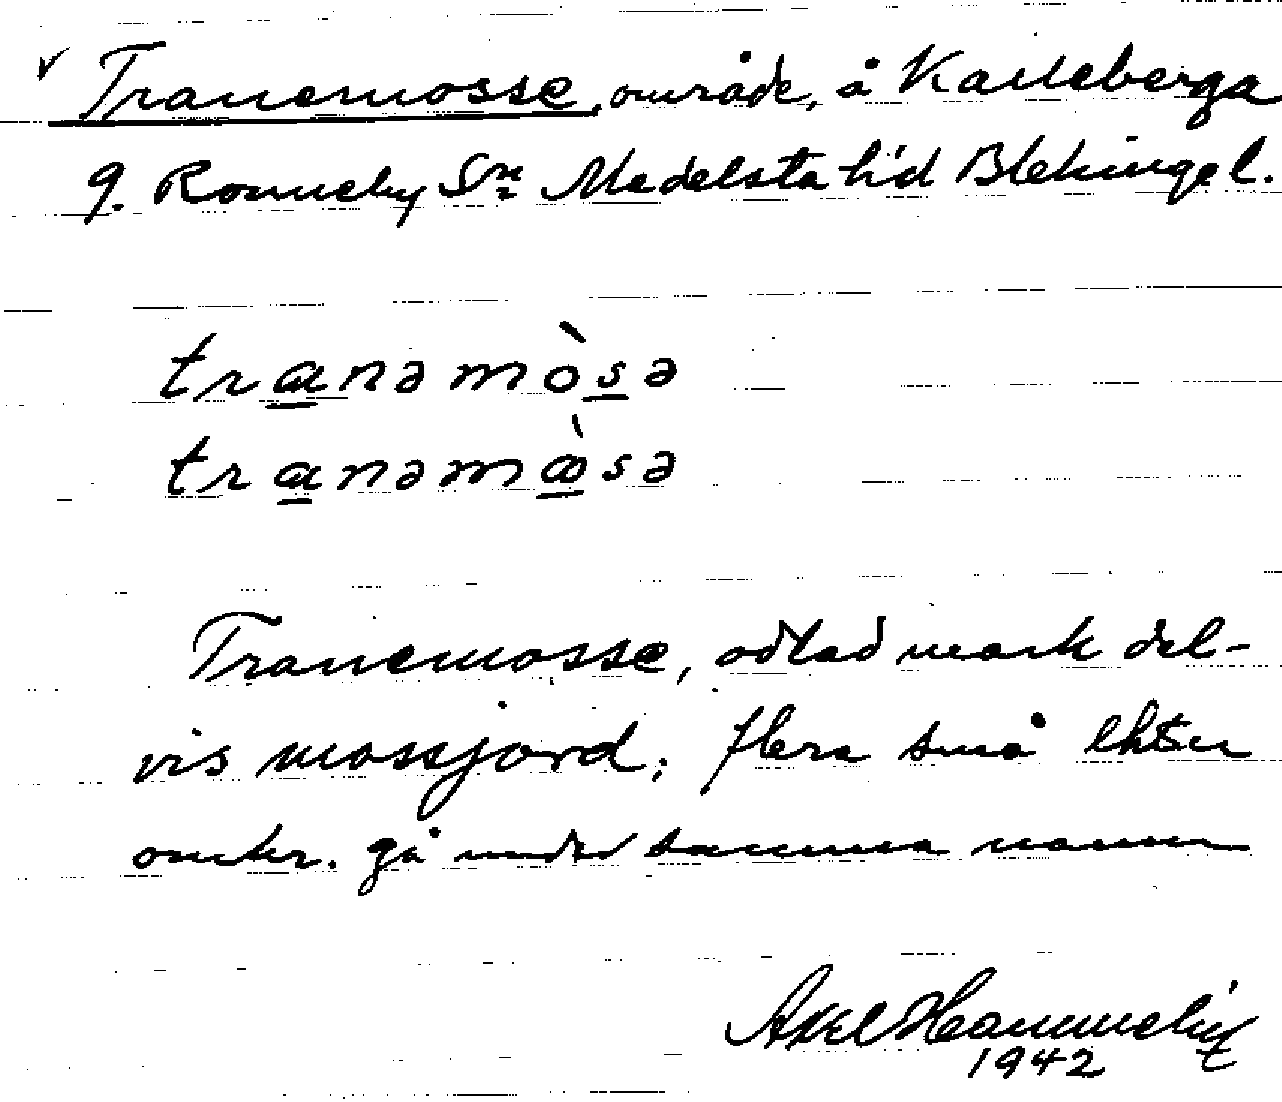 Tranemosse, område, å Karleberga
9. Ronneby Sn Medelsta hd Blekinge l.
tranəmòsə
tranəmòsə
Tranemosse, odlad mark del-
vis mossjord; flera små
omkr. gå under samma namn
Axel
1942